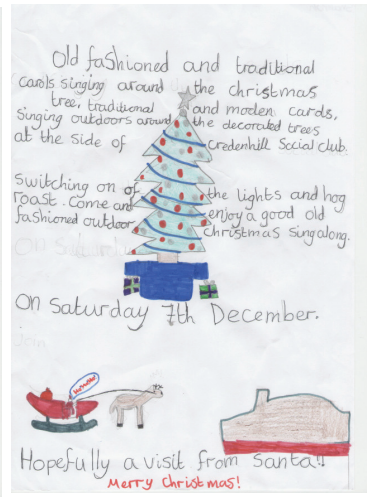 Old fashioned and traditional
carols singing around the christmas
tree, traditional and moden cards,
singing outdoors around the decorated trees
at the side of credenhill Social club.
Switching on of the lights and hog
roast. Come and enjoy a good old
fashioned outdoor christmas singalong.
On Saturday 7th December.
Hopefully a visit from santa!!
Merry Christmas!